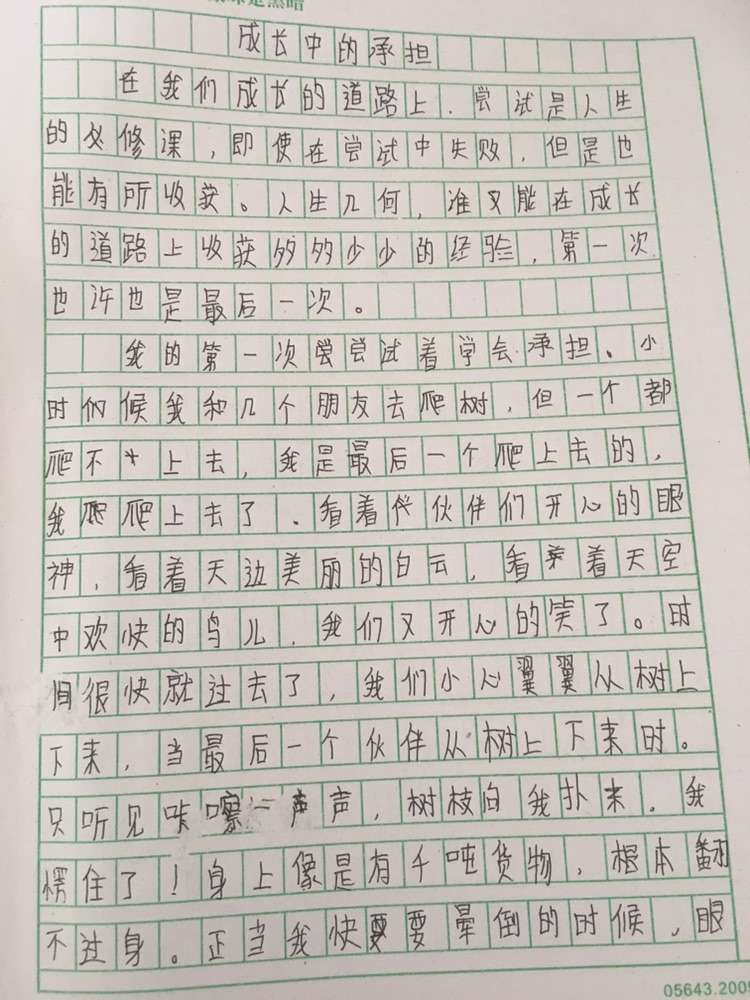 成长中的承担
在我们成长的道路上.尝试是人生
的必修课,即使在尝试中失败,但是也
能有所收获。人生几何,准又能在成长
的道路上收获多多少少的经验,第一次
也许也是最后一次。
我的第一次尝尝试着学会承担。小
时候我和几个朋友去爬树,但一个都
爬不上去,我是最后一个爬上去的,
我爬爬上去了.看着伙伴们开心的眼
神,看着天边美丽的白云,看着天空
中欢快的鸟儿.我们又开心的笑了。时
间很快就过去了,我们小心翼翼从树上
下来,当最后一个伙伴从树上下来时。
只听见咔嚓一声声,树枝向我扑来.我
愣住了!身上像是有千吨货物,根本翻
不过身。正当我快要要晕倒的时候,眼
05643.200